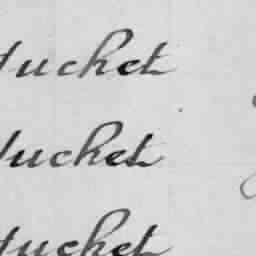 tucket
tucket
tucket